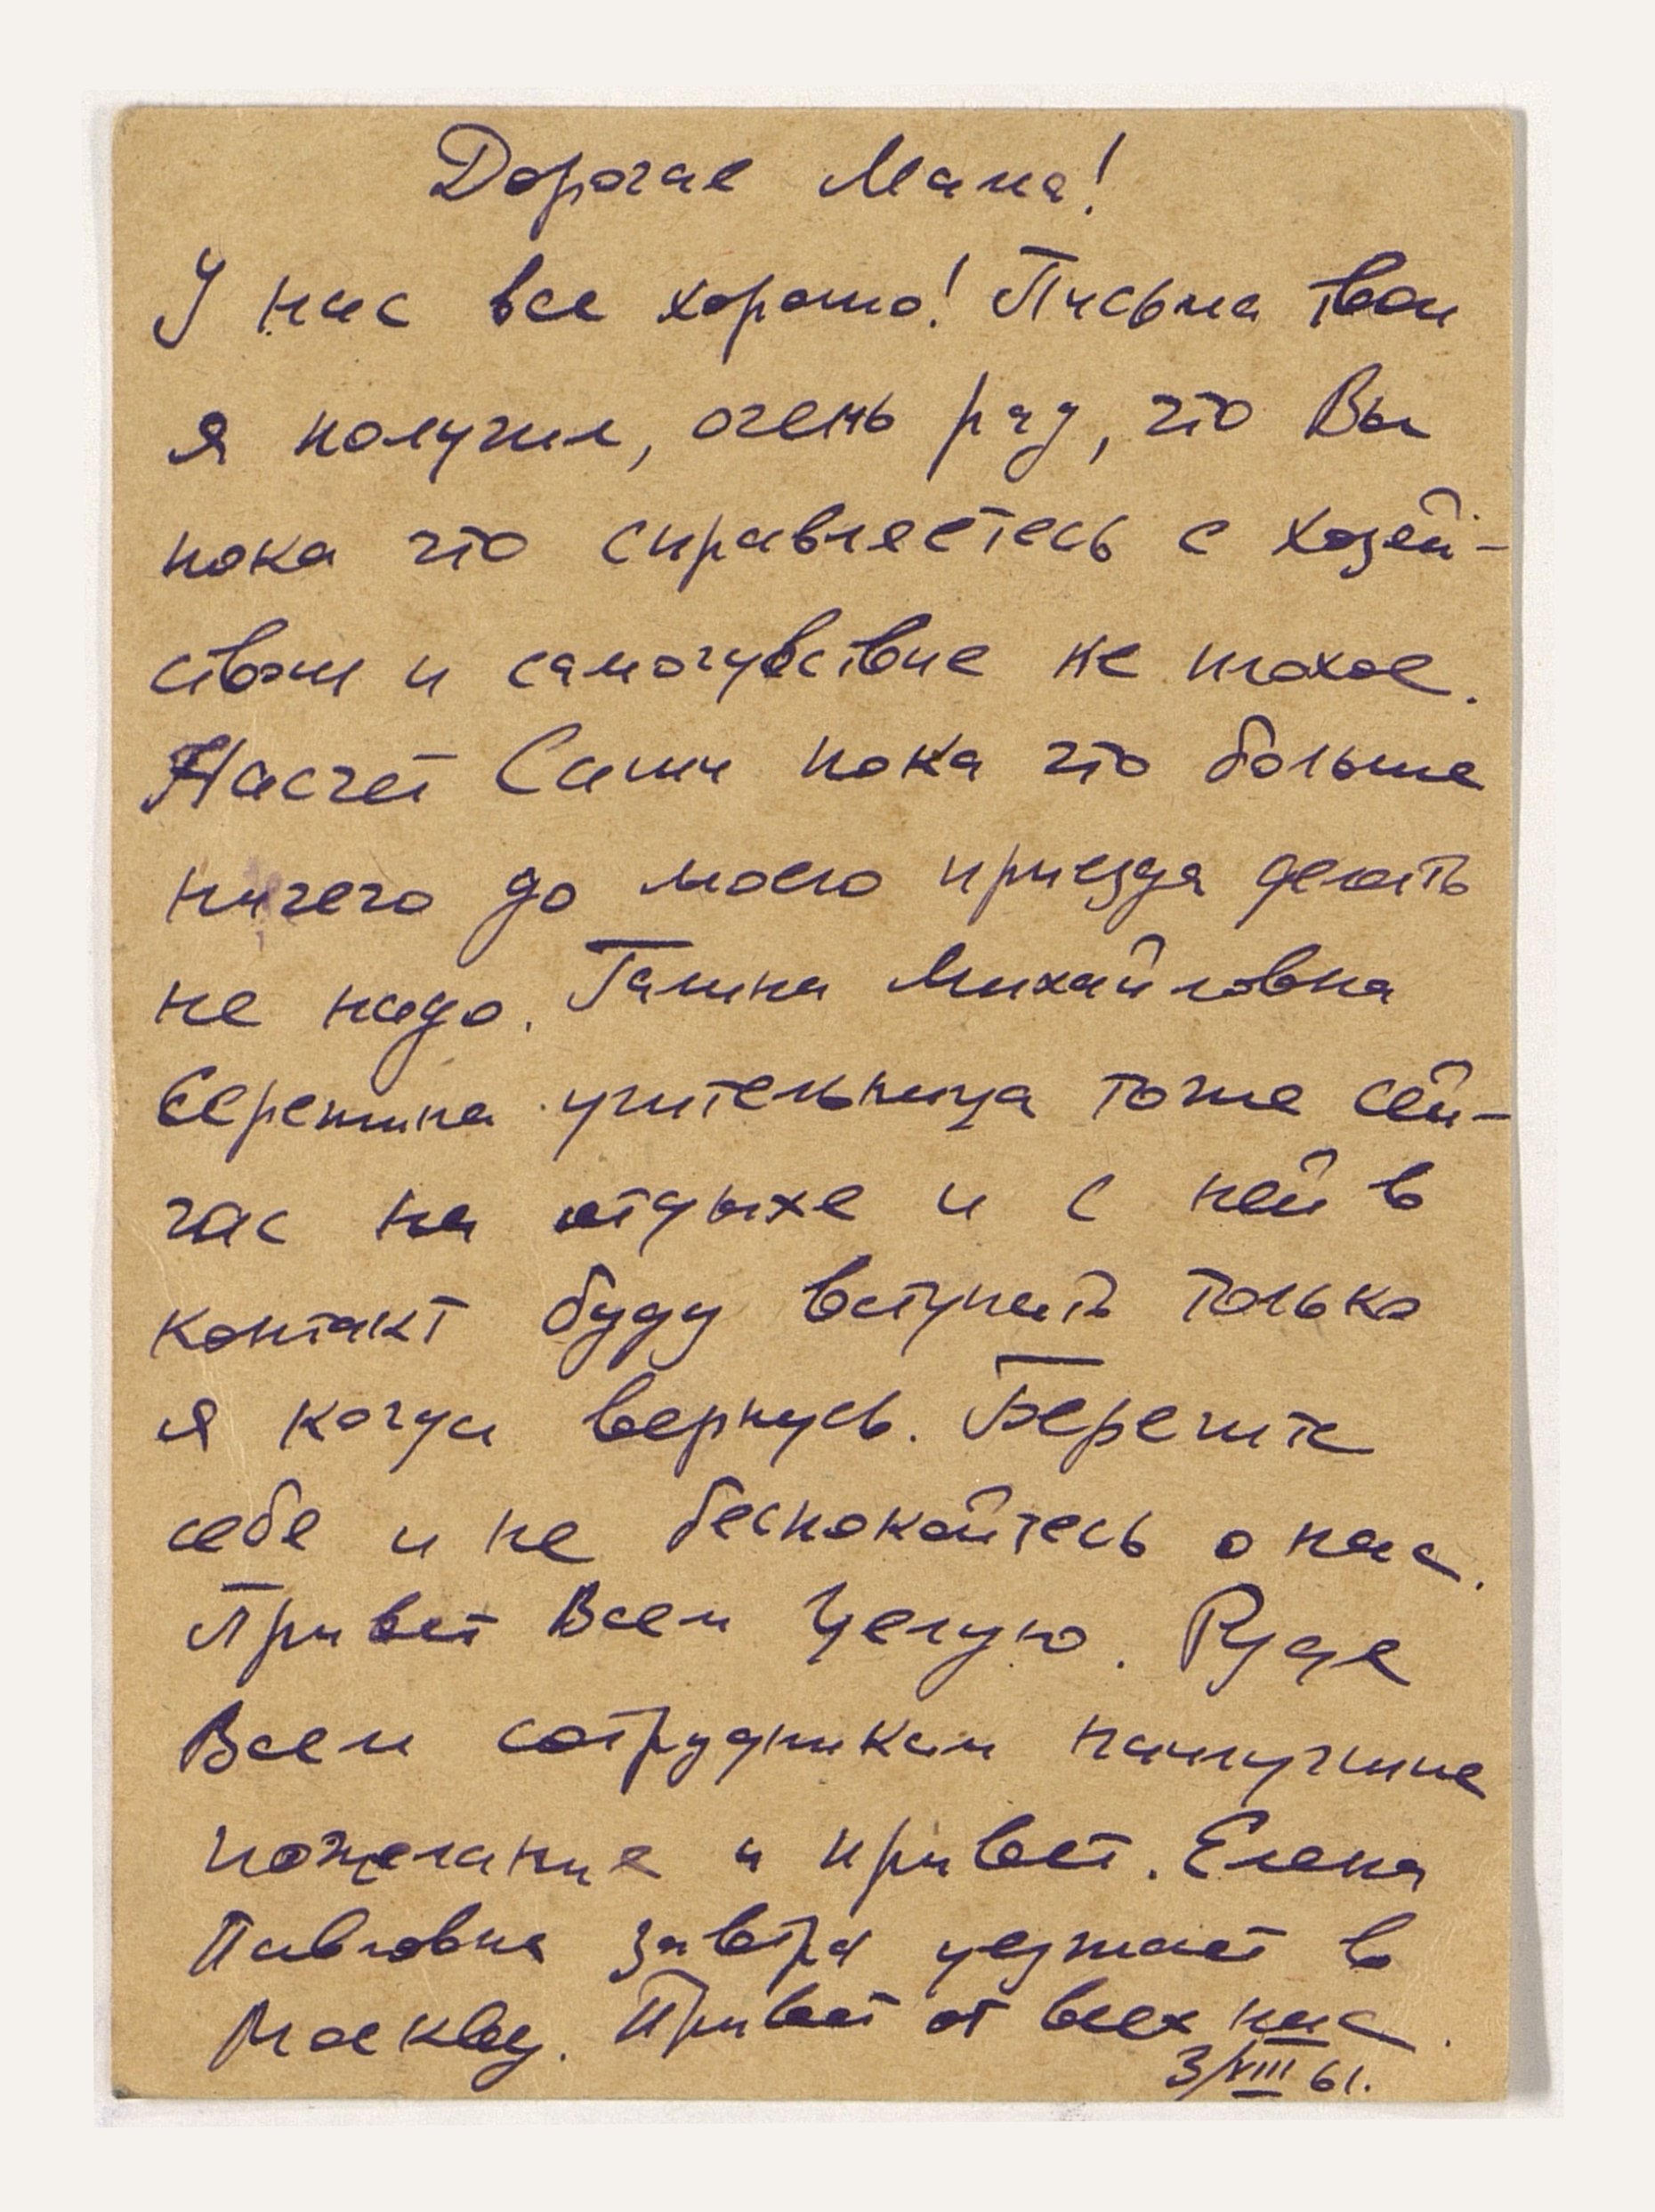 Дорогая Мама!
У нас все хорошо! Письма твои
я получил, очень рад, что Вы
пока что справляетесь с хозяй-
ством и самочувствие не плохое.
Насчет Саши пока что больше
ничего до моего приезда делать
не надо. Галина Михайловна
Сережина учительница тоже сей-
час на отдыхе и с ней в
контакт буду вступать только
я когда вернусь. Берегите
себя и не беспокойтесь о нас.
Привет Всем Целую. Рудя
Всем сотрудникам наилучшие
пожелание и привет. Елена
Павловна завтра уезжает в
Москву. Привет от всех нас.
3/VIII 61.